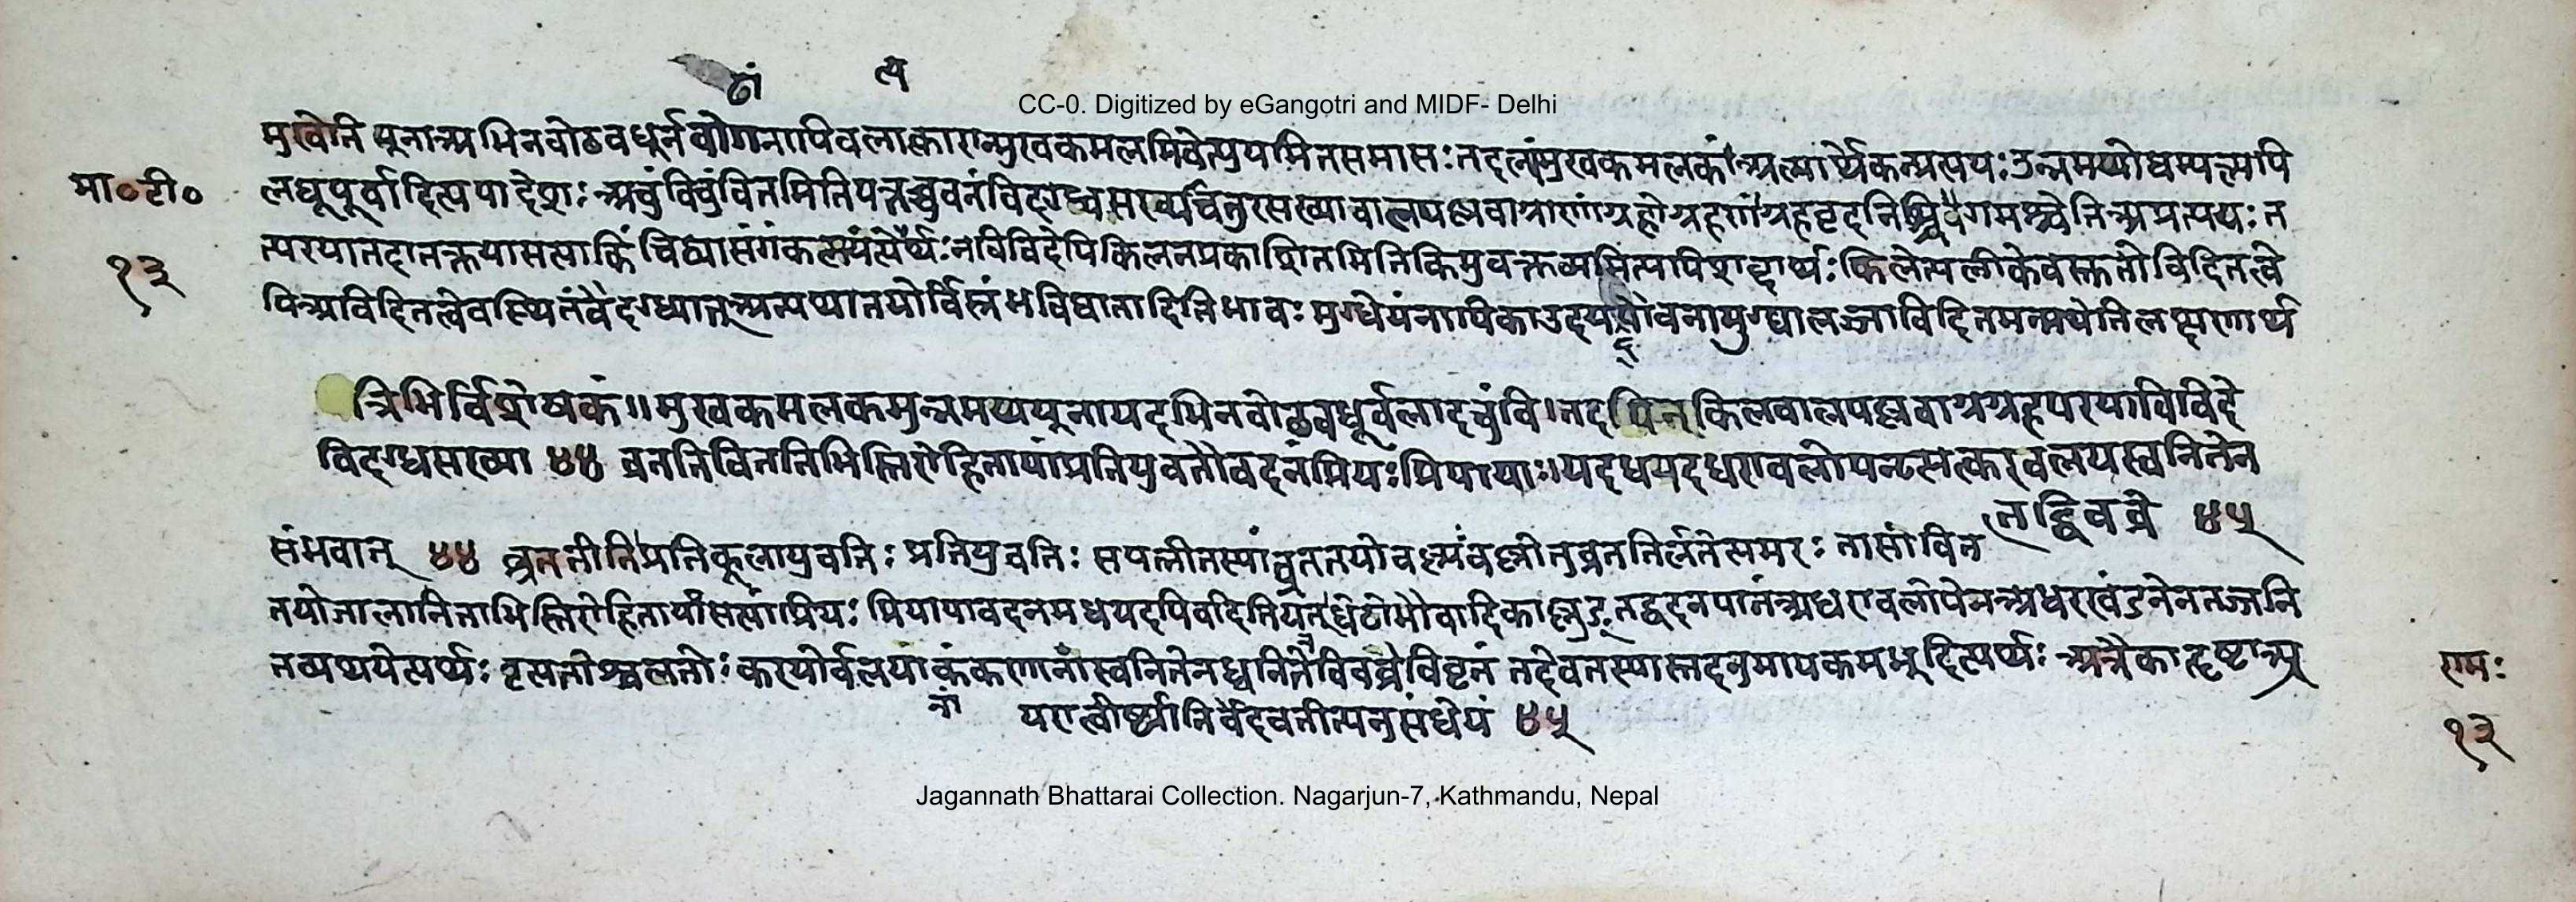 ढां त्य
CC-0. Digitized by eGangotri and MIDF- Delhi
मुखेति यूनाअभिनवोठवधूर्नवोगनापिवलात्कारान्मुखकमलमिवेत्युपमितसमासः तदलांमुखकमलकंअल्पार्थेकन्प्रत्ययः उन्नमय्योधम्यल्यपि
मा॰टी॰ लघूपूर्वादित्यपादेशः अचुंविचुंवितमितियत्तच्चुवनंविदग्धसख्यचतुरसख्यावालपल्लवाग्राणांग्रहोग्रहणंग्रहवृदनिश्चिगमश्चेतिअप्रत्ययः त
१३ त्परयातदानक्तयासत्याकिंचिव्यासंगंकलयंत्येर्थः नविविदेपिकिलनप्रकाशितमितिकिमुवक्तव्यमित्यपिशब्दार्थः किलेत्यलीकेवस्तुतोविदितत्वे
पिअविदितत्वेवस्थितंवैदग्ध्यात्अन्यथातयोर्विस्रंभविघातादितिभावः मुग्धेयंनायिकाउदयद्यौवनामुग्धालज्जाविदितमन्मथेतिलक्षणार्थ
त्रिभिर्विशेषकं॥ मुखकमलकमुन्नमय्ययूनायदभिनवोठवधूर्वलादचुंवि।तदपिनकिलवालपल्लवाग्रग्रहपरयाविविदे
विदग्धसख्या ४४ व्रततिविततिभिस्तिरोहितायांप्रतियुवतौवदनंप्रियःप्रियायाः॥यदधयदधरावलोपनृत्यत्करवलयस्वनितेन
तद्विवव्रे ४५
संभवात् ४४ व्रततीतिप्रतिकूलायुवतिः प्रतियुवतिः सपत्नीतस्यांव्रततयोवल्ल्यंवल्लीतुव्रततिर्लतेत्यमरः तासांवित
तयोजालानिताभिस्तिरोहितायांसत्यांप्रियः प्रियायावदनमधयदपिवदितियत्धेटोभौवादिकाल्लङ्तद्वदनपानंअधरावलोपेनअधरखंडनेनतज्जनि
तव्यथयेत्यर्थः नृत्यतोश्चलतोः करयोर्वलयांकंकणानांस्वनितेनध्वनितेनैवविवव्रेविवृतं तदेवतस्यास्तदनुमापकमभूदित्यर्थः अत्रैकादृष्टाअप्र रामः
नां यरात्वीर्ष्यानिर्वेदवतीत्यनुसंधेयं ४५ १३
Jagannath Bhattarai Collection. Nagarjun-7, Kathmandu, Nepal